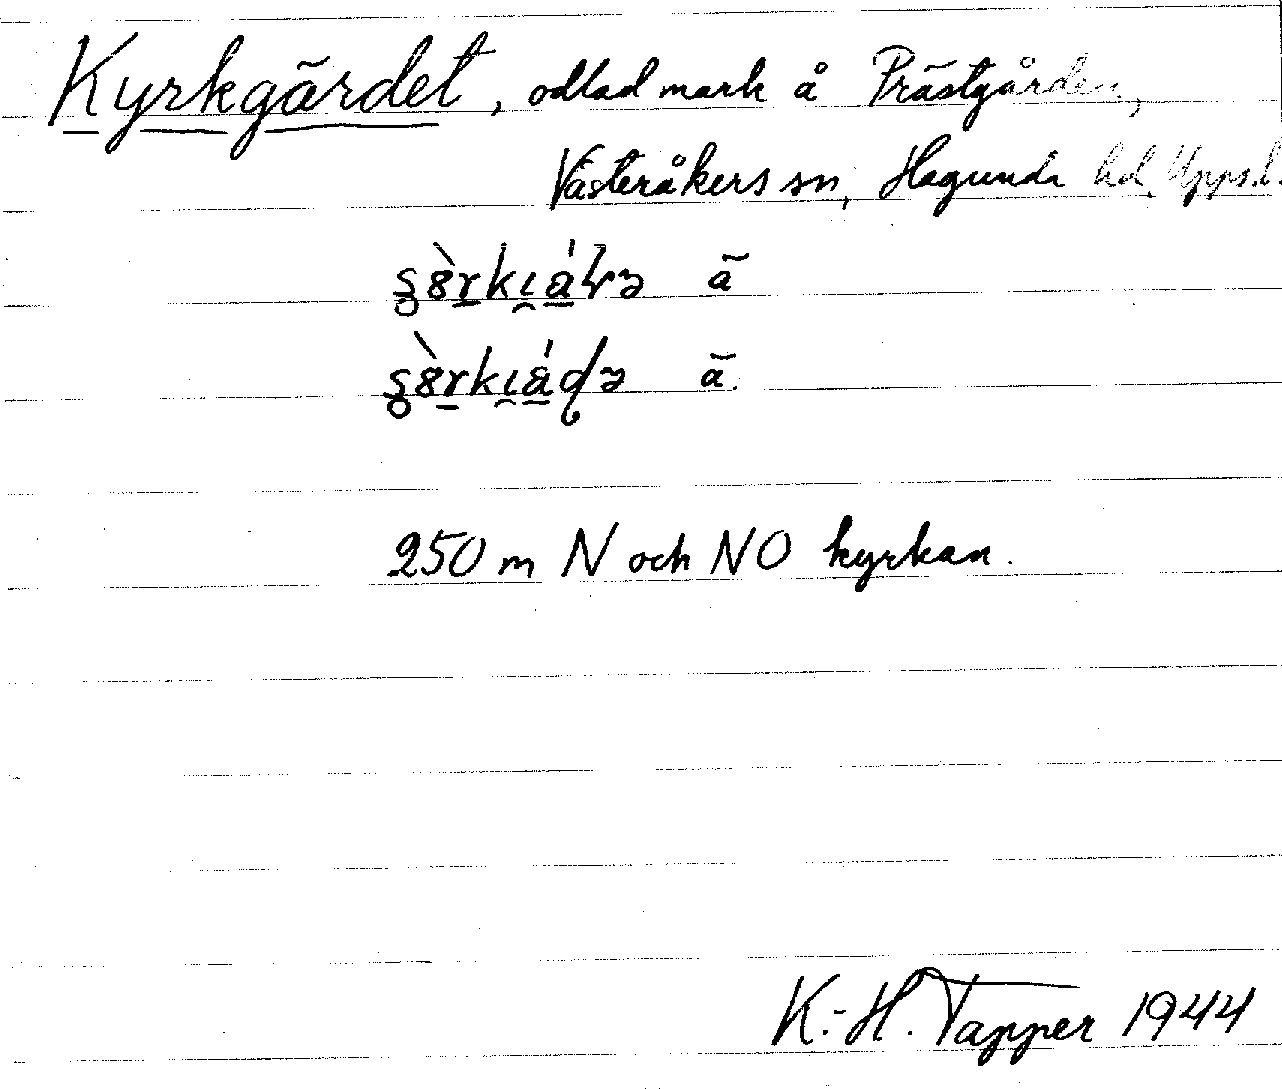 Kyrkgärdet, odlad mark å Prästgården,
Västeråkers sn, Hagunda hd, Upps.l.
ā
ā.
250 m N och NO kyrkan.
K.-H. Tapper 1944